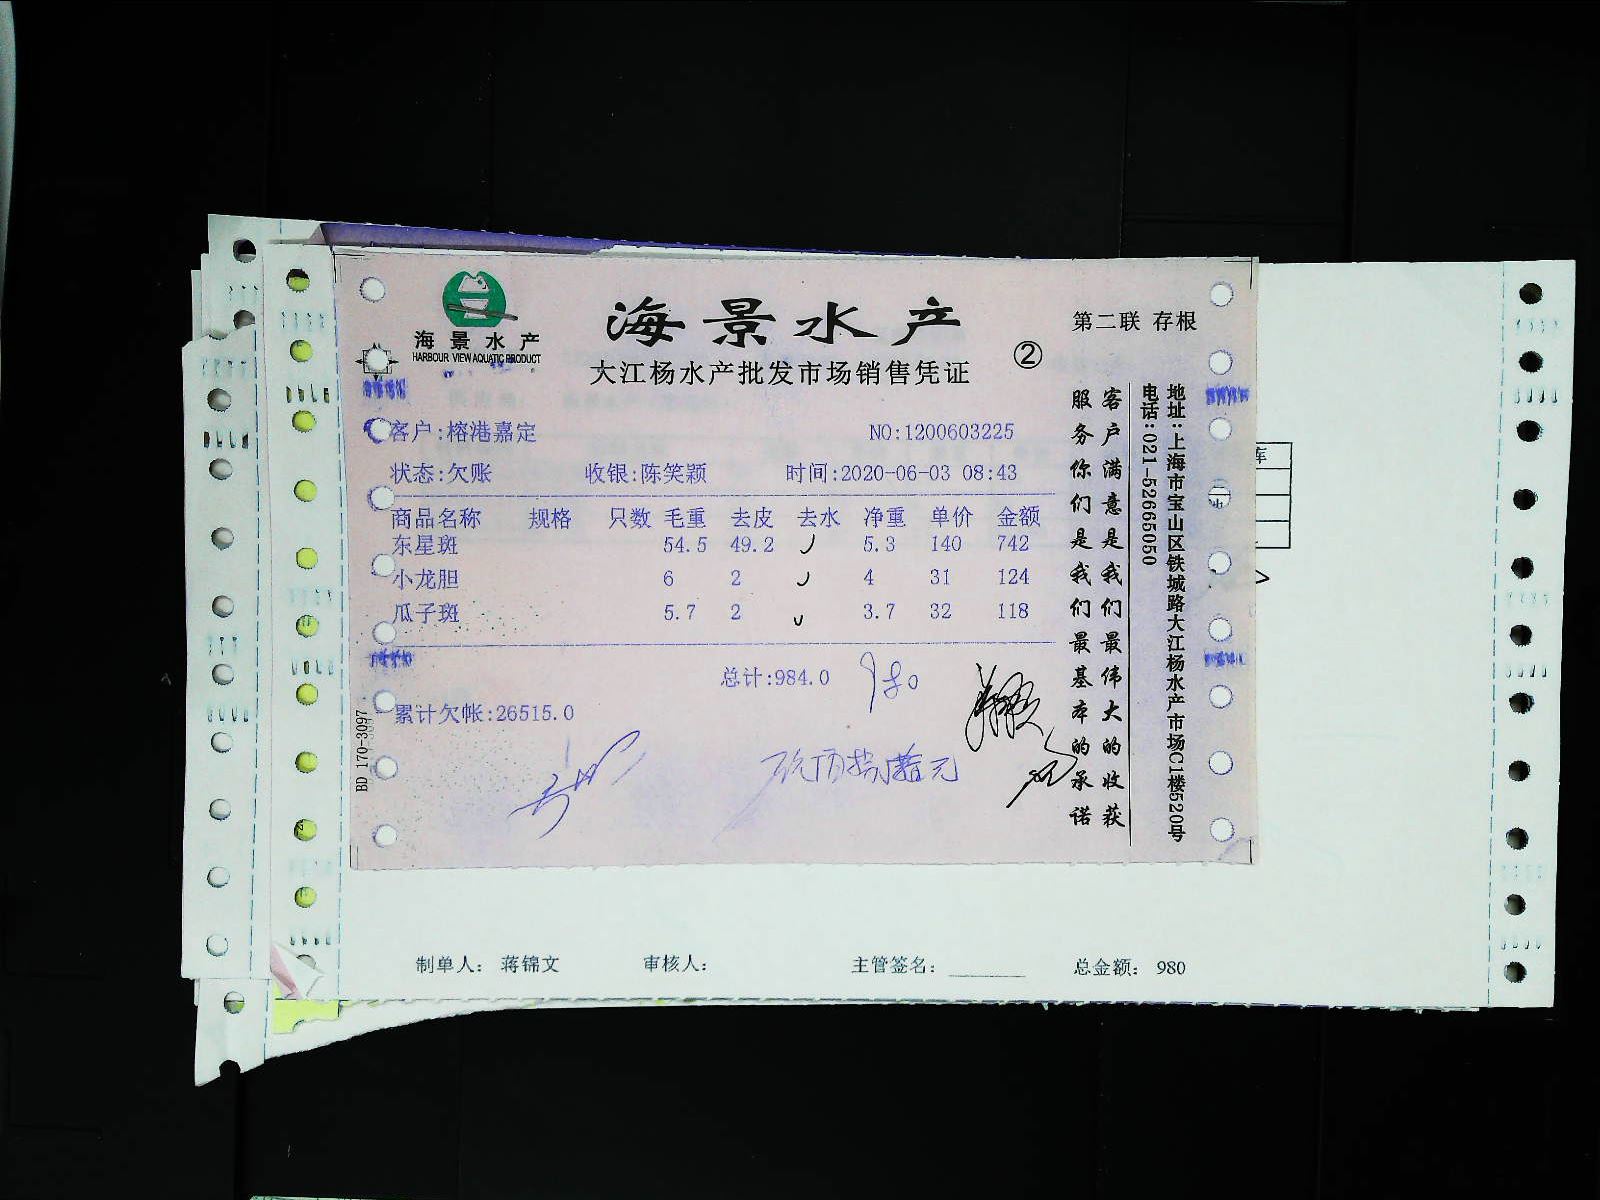 海景水产
HARBOUR VIEW AQUATIC PRODUCT
海景水产
大江杨水产批发市场销售凭证
②
第二联 存根
客户:榕港嘉定 NO:1200603225
状态:欠账 收银:陈笑颖 时间:2020-06-03 08:43
商品名称 规格 只数 毛重 去皮 去水 净重 单价 金额
东星斑 54.5 49.2 5.3 140 742
小龙胆 6 2 4 31 124
瓜子斑 5.7 2 3.7 32 118
总计:984.0 980
累计欠帐:26515.0
玖佰捌拾元
客户满意是我们最伟大的收获
服务你们是我们最基本的承诺
地址:上海市宝山区铁城路大江杨水产市场C1楼520号
电话:021-52665050
BD 170-3097
库
制单人: 蒋锦文 审核人: 主管签名: 总金额: 980